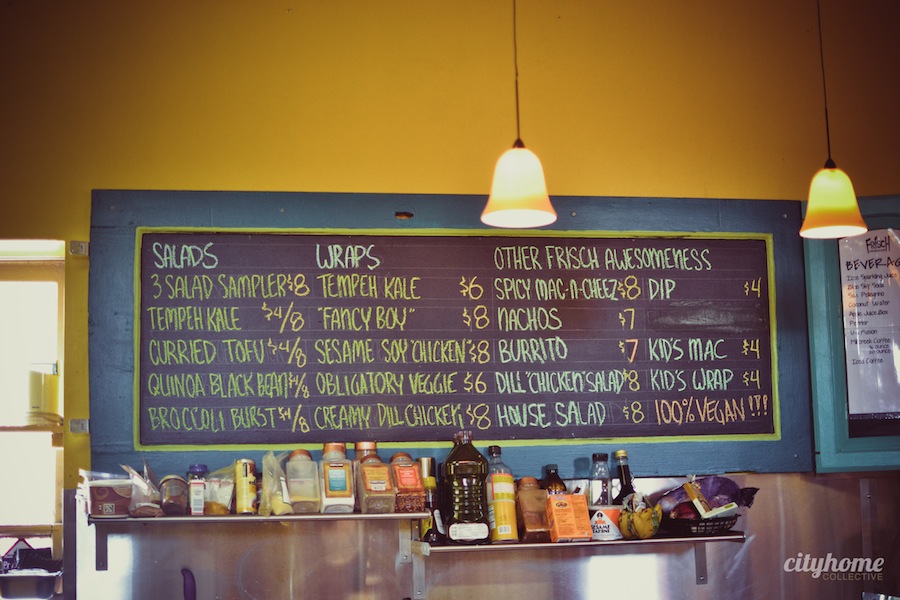 SALADS
3 SALAD SAMPLER $8
TEMPEH KALE $4/8
CURRIED TOFU $4/8
QUINOA BLACK BEAN $4/8
BROCCOLI BURST $4/8
WRAPS
TEMPEH KALE $6
"FANCY BOY" $8
SESAME SOY "CHICKEN" $8
OBLIGATORY VEGGIE $6
CREAMY DILL CHICKEN $8
OTHER FRISCH AWESOMENESS
SPICY MAC-N-CHEEZ $8
NACHOS $7
BURRITO $7
DILL "CHICKEN" SALAD $8
HOUSE SALAD $8
DIP $4
KID'S MAC $4
KID'S WRAP $4
100% VEGAN!!!
FRISCH
BEVERAG
Blue Sky Soda
San Pelegrino
Coconut Water
Apple Juice Box
Iced Coffee
SESAME
TAHINI
cityhome
COLLECTIVE